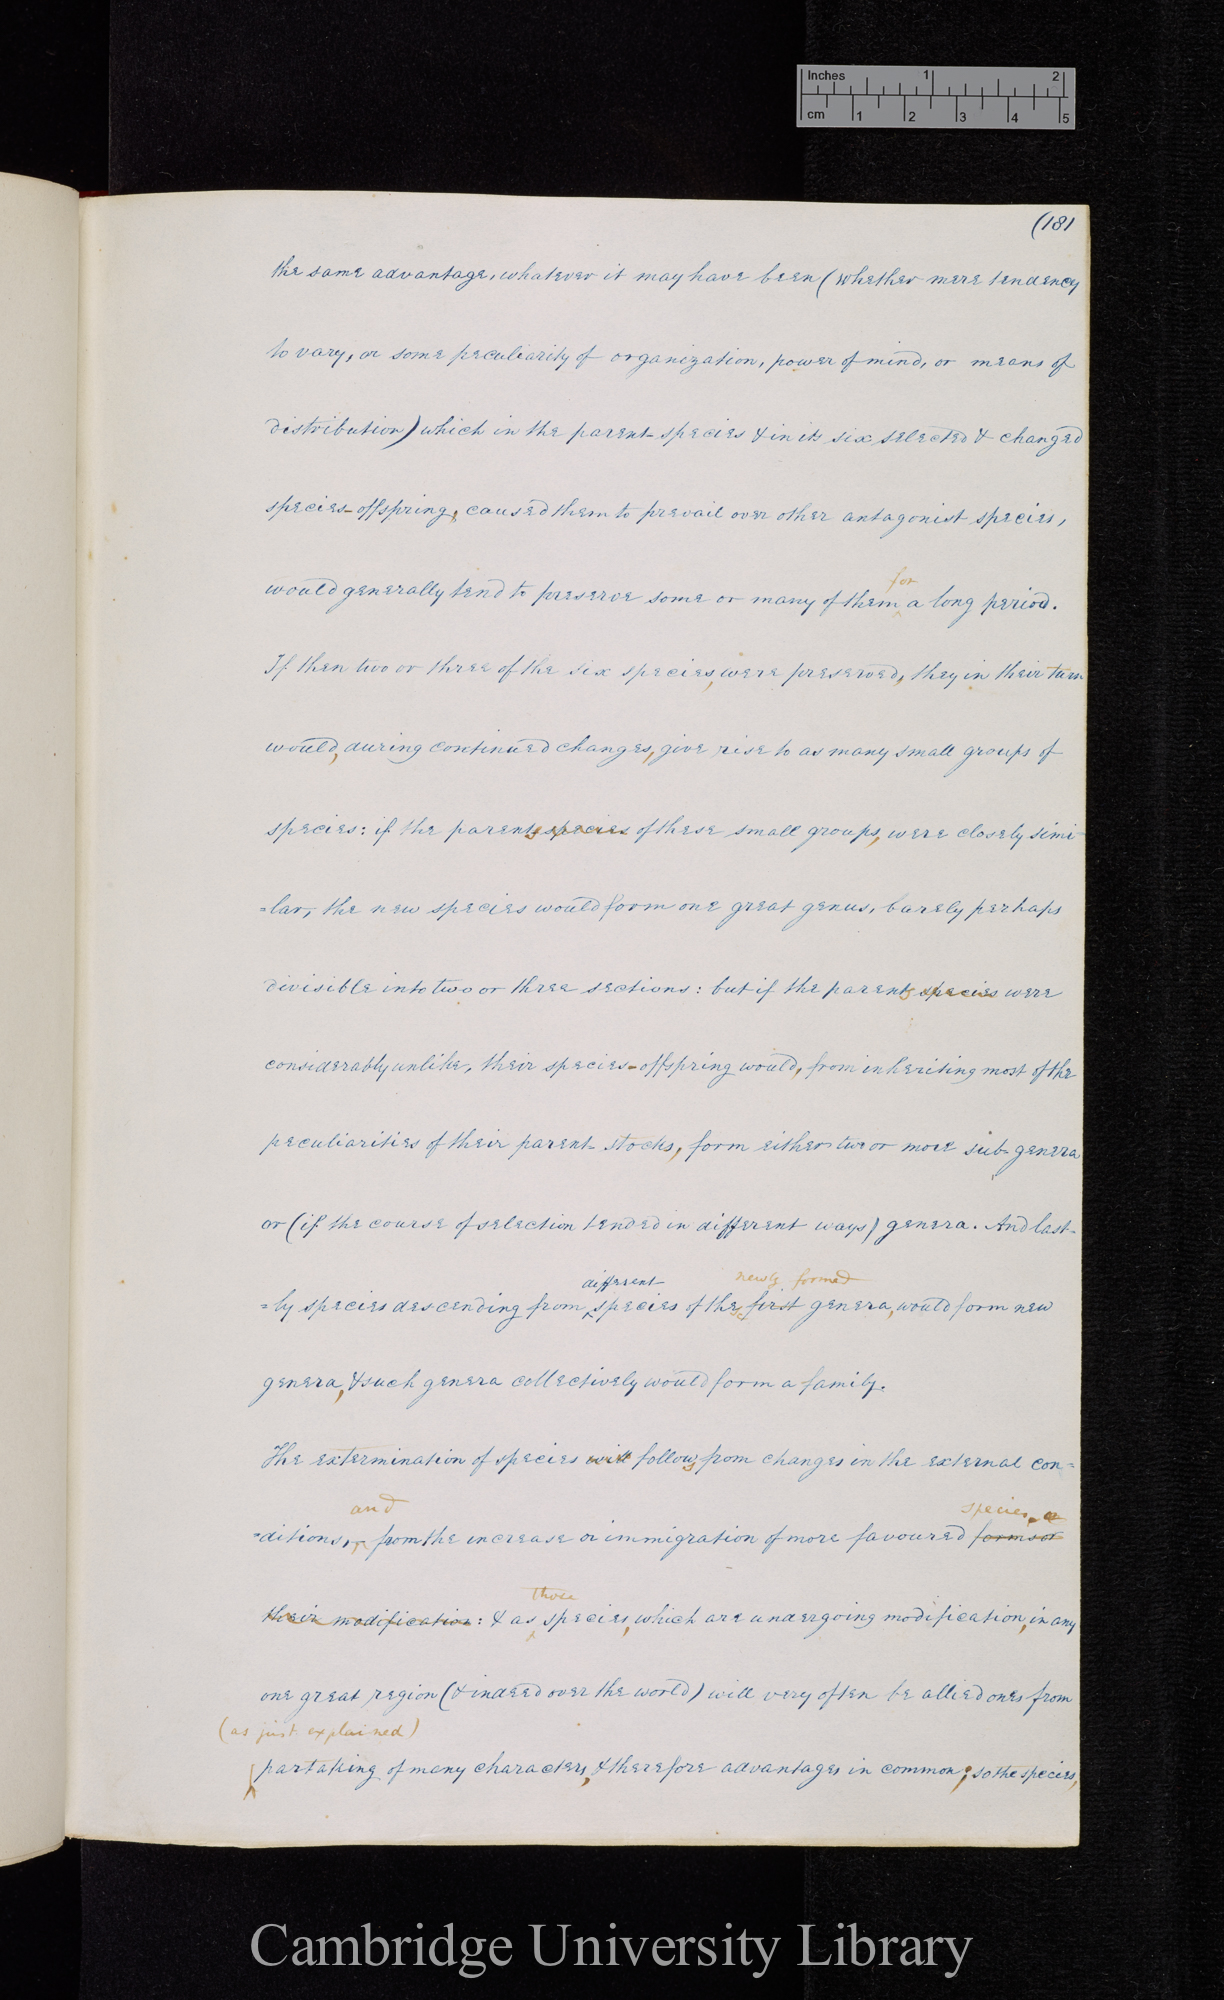 Inches 1 2
cm 1 2 3 4 5
(181
the same advantage, whatever it may have been (whether mere tendency
to vary, or some peculiarity of organization, power of mind, or means of
distribution) which in the parent-species & in its six selected & changed
species-offspring, caused them to prevail over other antagonist species,
for
would generally tend to preserve some or many of them a long period.
If then two or three of the six species, were preserved, they in their turn
would, during continued changes, give rise to as many small groups of
species: if the parents species of these small groups, were closely simi-
=lar, the new species would form one great genus, barely perhaps
divisible into two or three sections: but if the parents species were
considerably unlike, their species-offspring would, from inheriting most of the
peculiarities of their parent-stocks, form either two or more sub-genera
or (if the course of selection tended in different ways) genera. And last-
different newly formed
=ly species descending from species of the first genera, would form new
genera, & such genera collectively would form a family.
The extermination of species will follows from changes in the external con=
and species, or
=ditions, from the increase or immigration of more favoured forms or
those
their modification: & as species, which are undergoing modification, in any
one great region (& indeed over the world) will very often be allied ones from
(as just explained)
partaking of many characters, & therefore advantages in common; so the species,
Cambridge University Library